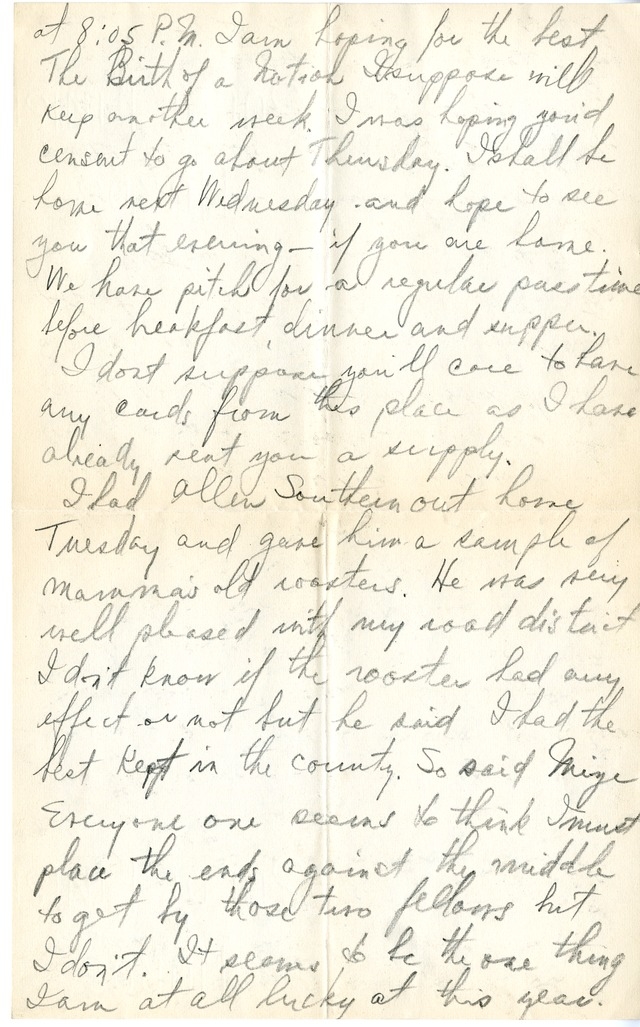 at 8:05 P.M. I am hoping for the best
The Birth of a Nation I suppose will
keep another week. I was hoping you'd
consent to go about Thursday. I shall be
home next Wednesday and hope to see
you that evening – if you are home.
We have pitch for a regular passtime
before breakfast, dinner and supper.
I dont suppose you'll care to have
any cards from this place as I have
already sent you a supply.
I had Allen Southern out home
Tuesday and gave him a sample of
mamma's old roosters. He was very
well pleased with my road district
I don't know if the rooster had any
effect or not but he said I had the
best kept in the county. So said Mize
Everyone one seems to think I must
place the ends against the middle
to get by those two fellows but
I don't. It seems to be the one thing
I am at all lucky at this year.